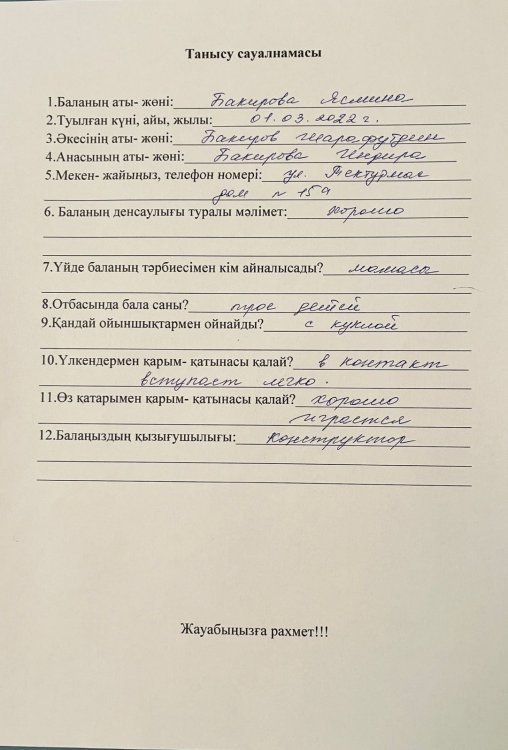 Танысу сауалнамасы
1.Баланың аты- жөні: Бакирова Ясмина
2.Туылған күні, айы, жылы: 01.03.2022 г.
3.Әкесінің аты- жөні: Бакиров Шарафутдин
4.Анасының аты- жөні: Бакирова Индира
5.Мекен- жайыңыз, телефон номері: ул. Тектурмас
дом № 159
6. Баланың денсаулығы туралы мәлімет: хорошо
7.Үйде баланың тәрбиесімен кім айналысады? мамасы
8.Отбасында бала саны? трое детей
9.Қандай ойыншықтармен ойнайды? с куклой
10.Үлкендермен қарым- қатынасы қалай? в контакт
вступает легко.
11.Өз қатарымен қарым- қатынасы қалай? хорошо
играется
12.Балаңыздың қызығушылығы: конструктор
Жауабыңызға рахмет!!!